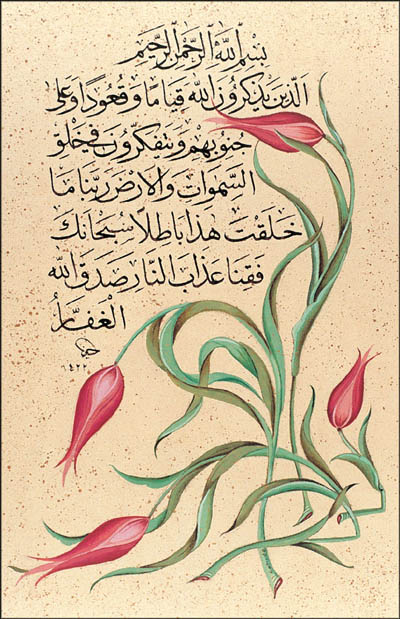 بسم الله الرحمن الرحيم
الذين يذكرون الله قياما وقعودا وعلى
جنوبهم ويتفكرون في خلق
السموات والارض ربنا ما
خلقت هذا باطلا سبحانك
فقنا عذاب النار صدق الله
الغفار
١٤٢٢